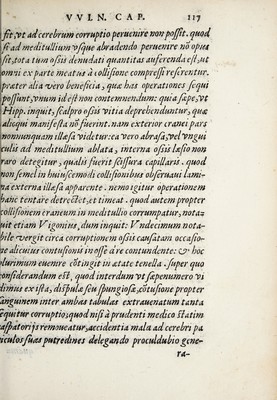 VVLN. CAP. 117
sit, vt ad cerebrum corruptio peruenire non possit. quod
si ad meditullium vsque abradendo peruenire nō opus
sit, tota tum ossis denudati quantitas auferenda est, ut
omni ex parte meatus à collisione compressi reserentur.
præter alia vero beneficia, quæ has operationes sequi
possunt, unum id est non contemnendum: quia sæpe, vt
Hipp. inquit, scalpro ossis vitia deprehenduntur, quæ
alioqui manifesta nō fuerint. nam exterior cranei pars
nonnunquam illæsa videtur: ea vero abrasa, vel vngui
culi ad meditullium ablata, interna ossis læsio non
raro detegitur, qualis fuerit scissura capillaris. quod
non semel in huiuscemodi collisionibus obseruaui lami
na externa illæsa apparente. nemo igitur operationem
hanc tentare detrectet, et timeat. quod autem propter
collisionem craneum in meditullio corrumpatur, nota-
uit etiam Vigonius, dum inquit: Vndecimum nota-
bile vergit circa corruptionem ossis causatam occasio-
ne alicuius contusionis in osse à re contundente: & hoc
plurimum euenire cōtingit in ætate tenella. super quo
considerandum est, quod interdum vt sæpenumero vi
dimus ex ista, dispulsa seu spungiosa, cōtusione propter
sanguinem inter ambas tabulas extrauenatum tanta
sequitur corruptio: quod nisi à prudenti medico statim
aspratorijs remoueatur, accidentia mala ad cerebri pa
niculos suas putredines delegando procul dubio gene-
ra-